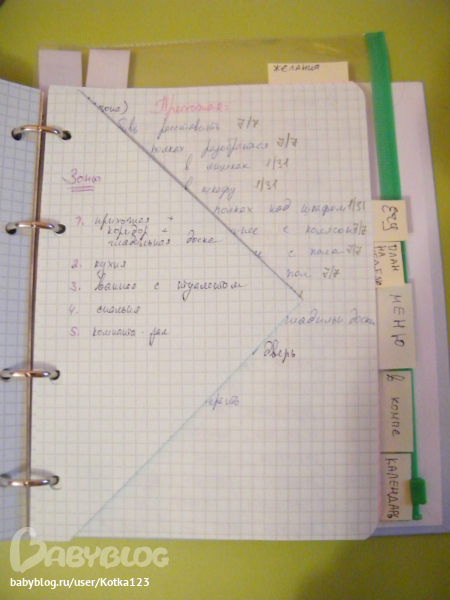 желания
Прихожая:
расставить 7/7
полках разобраться 7/7
в ящиках 1/31
в шкафу 1/31
полках под шкафом 1/31
с коляской 7/7
с пола 7/7
пол 7/7
гладильн доска
дверь
Зоны
1. прихожая +
коридор +
гладильная доска
2. кухня
3. ванная с туалетом
4. спальня
5. комната - зал
ЕДА
ПЛАН
НА ДЕНЬ
МЕНЮ
в компе
КАЛЕНДАРЬ
BABYBLOG
babyblog.ru/user/Kotka123